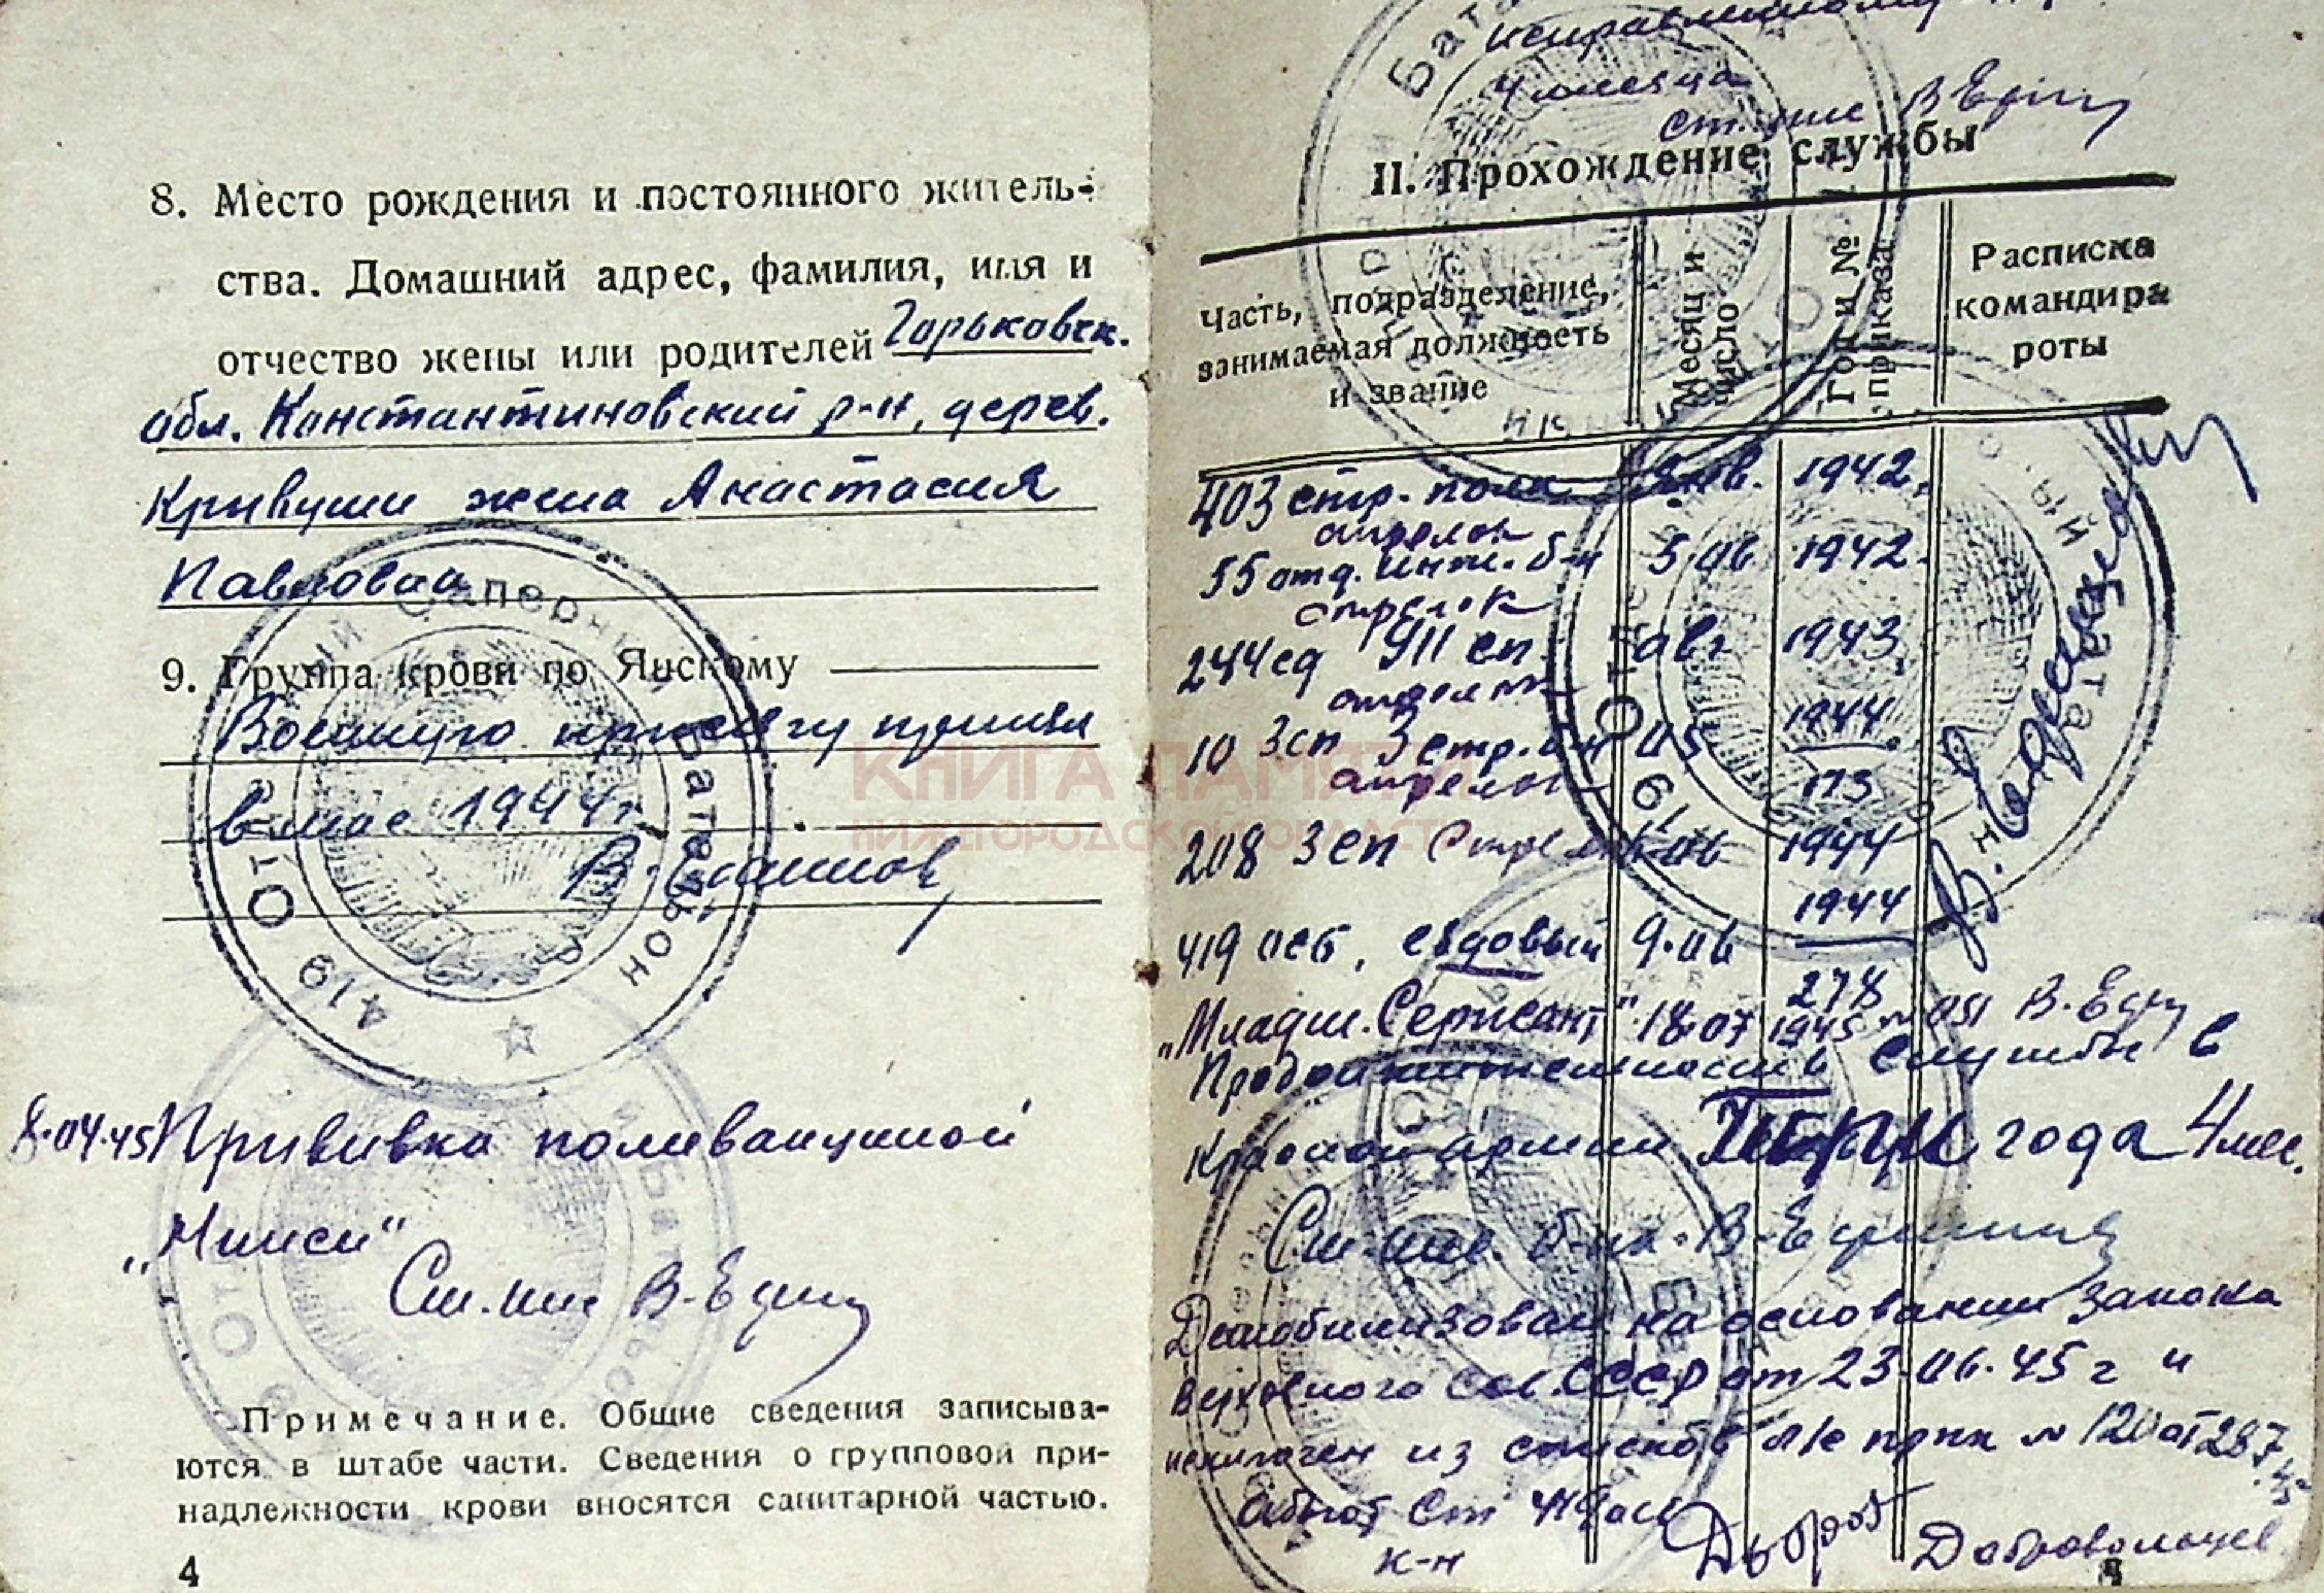 8. Место рождения и постоянного житель-
ства. Домашний адрес, фамилия, имя и
отчество жены или родителей Горьковск.
обл. Константиновский р-н, дерев.
Кривуши жена Анастасия
Павловна
9. Группа крови по Янскому
Военную присягу принял
в мае 1944 г.
419 Отд Саперный Батальон
8.04.45 Прививка поливакциной
"Ниисй"
Ст. В. Един
Примечание. Общие сведения записыва-
ются в штабе части. Сведения о групповой при-
надлежности крови вносятся санитарной частью.
4
исправленному
4 месяца
В Един
II. Прохождение службы
Часть, подразделение, занимаемая должность и звание
Месяц и число
Год и № приказа
Расписка командира роты
403 стр. полк янв. 1942
стрелок
55 отд. инж. б-н 5 06 1942
стрелок
244 сд 911 сп. авг 1943
стрелок
10 Зсп 3 стр. б-н 05 1944
173
стрелок
208 Зсп 06 1944
419 осб, ездовый 9.06 1944
278
"Младш. Сержант" 18.07 1945 № 051 В. Един
Продолжительность службы в
Красной армии года 4 мес.
Демобилизован на основании Закона
Верховного Сов. СССР от 23.06.45 г и
исключен из списков л/с прик № 120 от 28.7.45
К-н Добровольцев
КНИГА ПАМЯТИ
НИЖЕГОРОДСКОЙ ОБЛАСТИ